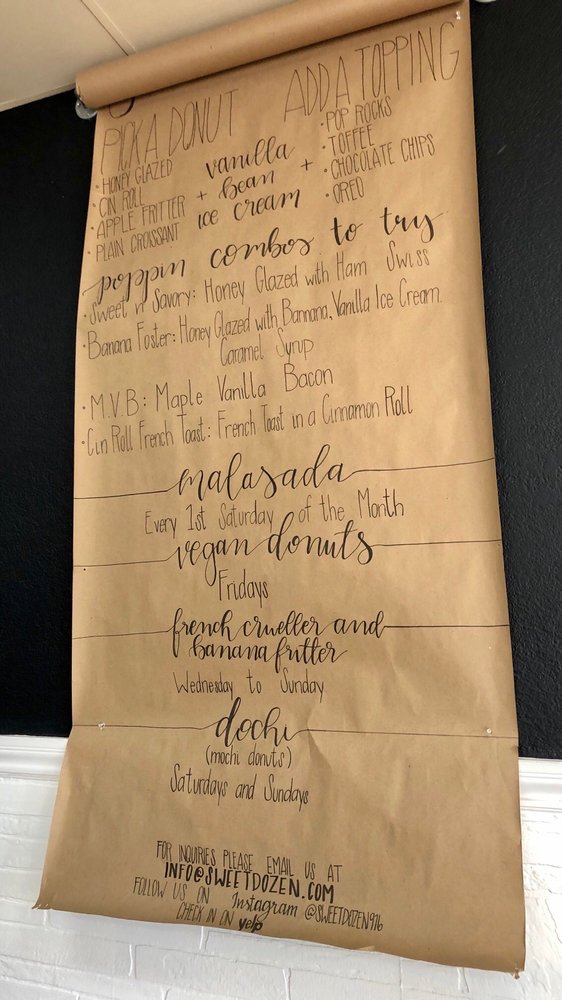 PICK A DONUT
ADD A TOPPING
• HONEY GLAZED
• CIN ROLL
• APPLE FRITTER
• PLAIN CROISSANT
+ vanilla
bean
ice cream
+
• POP ROCKS
• TOFFEE
• CHOCOLATE CHIPS
• OREO
poppin combos to try
• Sweet n' Savory: Honey Glazed with Ham Swiss
• Banana Foster: Honey Glazed with Bannana, Vanilla Ice Cream
Caramel Syrup
• M.V.B: Maple Vanilla Bacon
• Cin Roll French Toast: French Toast in a Cinnamon Roll
malasada
Every 1st Saturday of the Month
vegan donuts
Fridays
french crueller and
banana fritter
Wednesday to Sunday
dochi
(mochi donuts)
Saturdays and Sundays
FOR INQUIRIES PLEASE EMAIL US AT
INFO@SWEETDOZEN.COM
FOLLOW US ON Instagram @SWEETDOZEN916
CHECK IN ON yelp